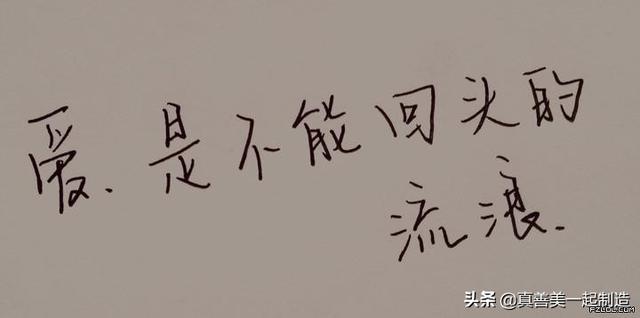 爱、是不能回头的
流浪.
头条 @真善美一起制造
FZLOL.COM